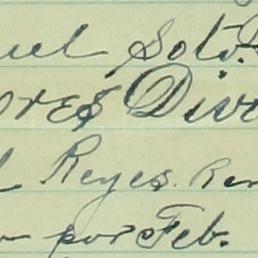 uel Soto.
ores Divi
l Reyes. Ren
por Feb.